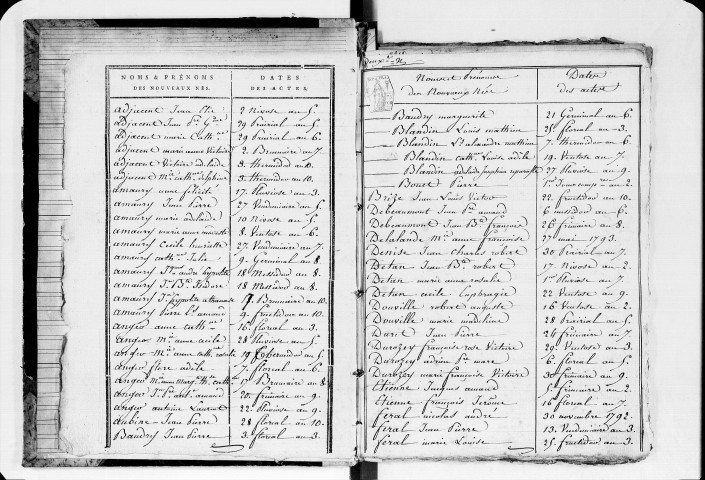 NOMS & PRÉNOMS DATES
DES NOUVEAUX NÉS. DES ACTES.
adjacent Jean 2 Nivose an 5.
adjacent Jean 29 Prairial an 5.
adjacent marie Cath. 29 Prairial an 6.
adjacent marie anne Victoire 2. Brumaire an 7.
adjacent Victoire adelaide 3 thermidor an 10.
adjacent Mie. cath. delphine 3. thermidor an 10.
amaury anne félicité 17. Pluviose an 3.
amaury Jean Pierre 27 Vendemiaire an 5.
amaury marie adelaide 10 Nivose an 5.
amaury marie anne 8. Ventose an 6.
amaury Cecile henriette 27. Vendemiaire an 7.
amaury cath. Julie 9. Germinal an 8.
amaury hypolite 18 Messidor an 8.
amaury Jn. Bte. Isidore 18 Messidor an 8.
amaury Jn. hypolite Brumaire an 10.
amaury Pierre amand 9. fructidor an 10.
anger anne cath. 16 floréal an 3.
anger Me. anne cécile 28 Pluviose an 5.
anger Me. anne cath. 19 thermidor an 5.
anger adèle 7. floréal an 6.
anger cath. 17 Brumaire an 8.
anger Jn. Pre. ant. amand 20. frimaire an 9.
anger antoine Laurent 22 Pluviose an 9.
Aubine Jean Pierre 28 floréal an 10.
Baudry Jean Pierre 3. floréal an 3.
Noms et Prénoms Dates
des Nouveaux Nés des actes
Baudry marguerite 21 Germinal an 6.
Blandin Louis mathieu 25. floréal an 3.
Blandin Lt. alexandre mathieu 7. thermidor an 6.
Blandin cath. Louise adèle 19. Ventose an 7.
Blandin adelaide Josephine 27 Pluviose an 9.
Bouet Pierre 1er. Jour comp. an 2.
Brize Jean Louis Victor 22 fructidor an 10.
Debeaumont Jean Pre. amand 6 messidor an 6.
Debeaumont Jean Bte. françois 26 frimaire an 8.
Delalande Me. anne françoise 27 mai 1793.
Denise Jean charles robert 30 Prairial an 7.
Détan Jean Bte. robert 17. Nivose an 2.
Détan marie anne rosalie 1er. Pluviose an 7.
Détan cécile Euphrasie 22 Ventose an 9.
Douville robert auguste 16 Ventose an 2.
Douville marie madeleine 28 Prairial an 5.
Duret Jean Pierre 24 frimaire an 7.
Durozey françoise rose Victoire 29. Ventose an 3.
Durozey adrien Pre. marc 6. floréal an 5.
Durozey marie françoise Victoire 30 frimaire an 9.
Etienne Jacques amand 5. frimaire an 2.
Etienne françois Jérôme 16 floréal an 7.
feral nicolas andré 30 novembre 1792.
feral Jean Pierre 13. Vendemiaire an 3.
feral marie Louise 25. fructidor an 3.